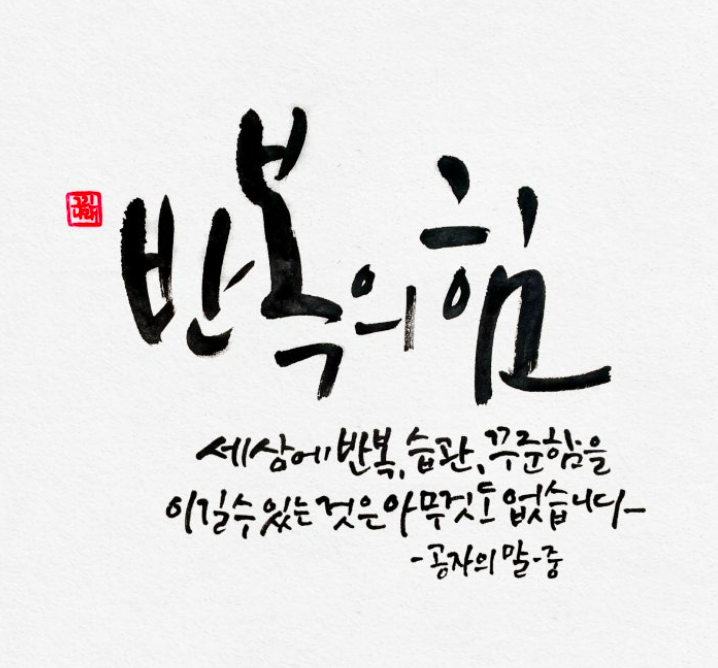 반복의 힘
세상에 반복, 습관, 꾸준함을
이길 수 있는 것은 아무것도 없습니다
-공자의 말-중